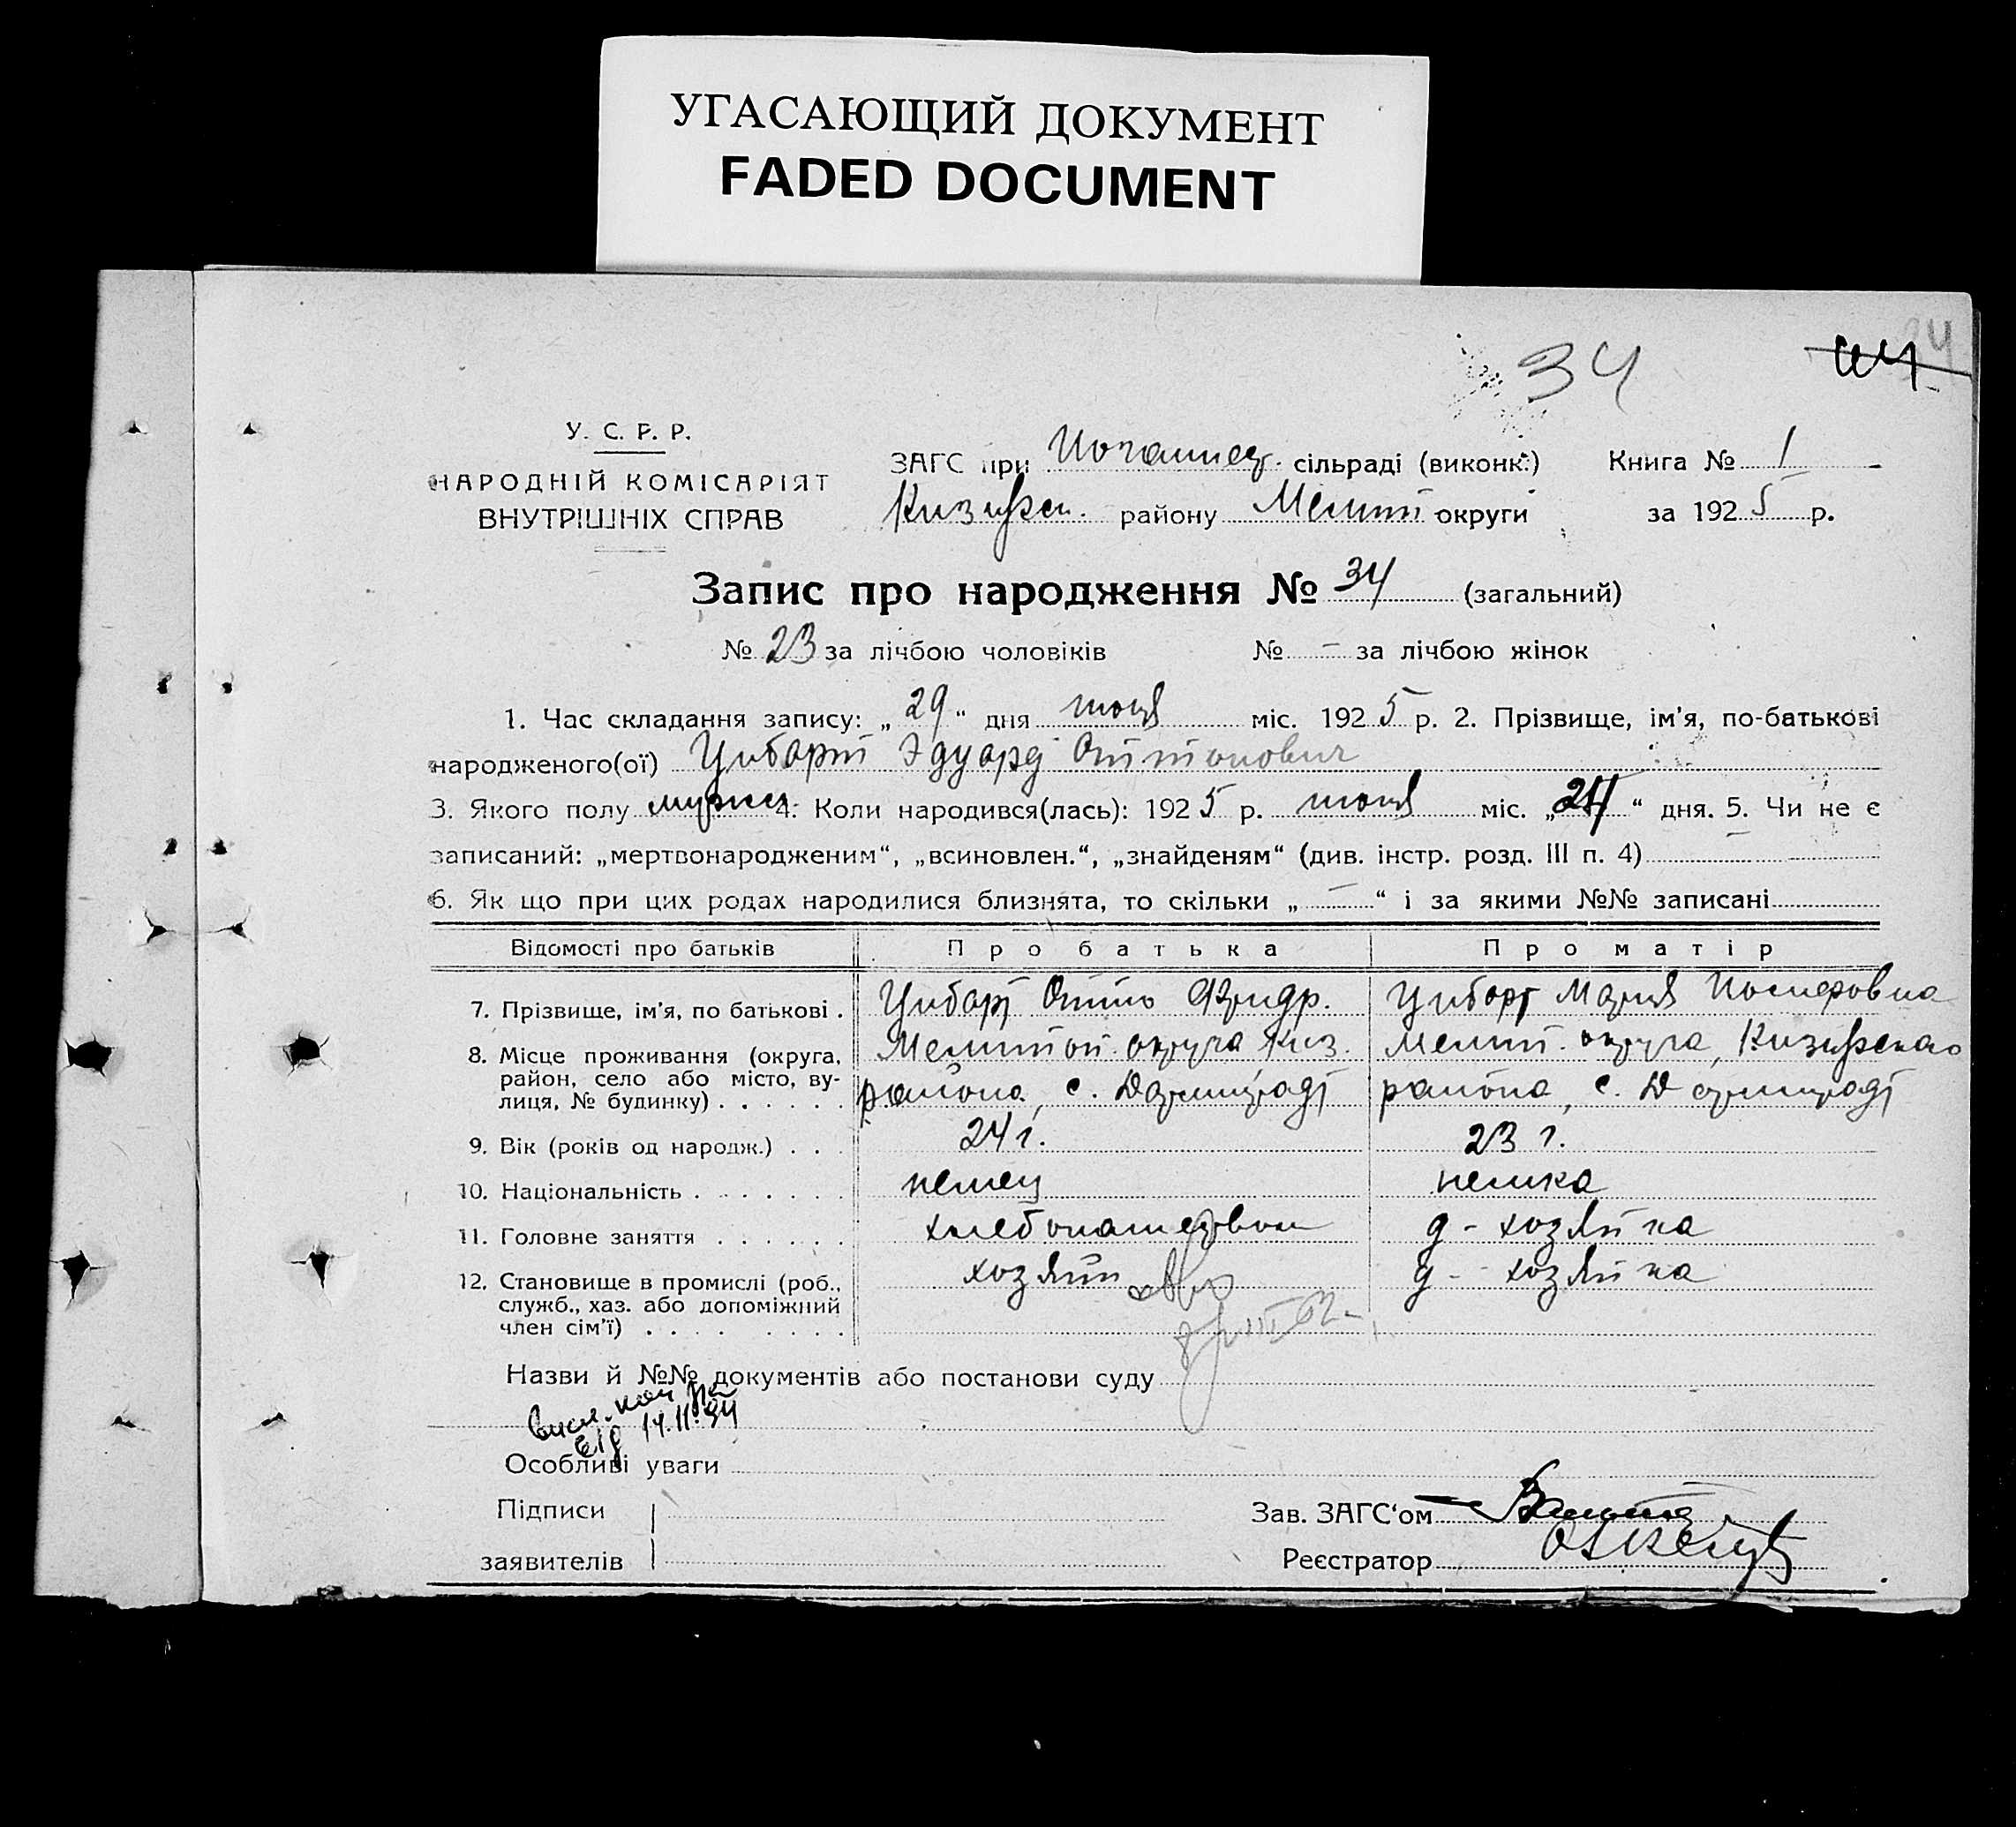 УГАСАЮЩИЙ ДОКУМЕНТ
FADED DOCUMENT
34
У. С. Р. Р.
НАРОДНІЙ КОМІСАРІЯТ
ВНУТРІШНІХ СПРАВ
ЗАГС при сільраді (виконк.) Книга № 1
району Мелит округи за 1925 р.
Запис про народження № 34 (загальний)
№ 23 за лічбою чоловіків № – за лічбою жінок
1. Час складання запису: „29“ дня міс. 1925 р. 2. Прізвище, ім'я, по-батькові
народженого(ої) Цибарт Эдуард Оттонович
3. Якого полу мужск. 4. Коли народився(лась): 1925 р. міс. „ “ дня. 5. Чи не є
записаний: „мертвонародженим“, „всиновлен.“, „знайденям“ (див. інстр. розд. III п. 4) –
6. Як що при цих родах народилися близнята, то скільки „ – “ і за якими №№ записані
Відомості про батьків Про батька Про матір
7. Прізвище, ім'я, по батькові . Цибарт Отто Фридр. Цибарт Мария Иосифовна
8. Місце проживання (округа, район, село або місто, вулиця, № будинку) . . . . . . Мелитоп. округа Киз. района, с. Дармштадт Мелит. округа, района, с. Дармштадт
9. Вік (років од народж.) . . . 24 г. 23 г.
10. Національність . . . . . . . немец немка
11. Головне заняття . . . . . . хлебопашеством д-хозяйка
12. Становище в промислі (роб., служб., хаз. або допоміжний член сім'ї) . . . . . . . . хозяин д-хозяйка
Назви й №№ документів або постанови суду
14.11.94
Особливі уваги
Підписи
заявителів
Зав. ЗАГС'ом
Реєстратор